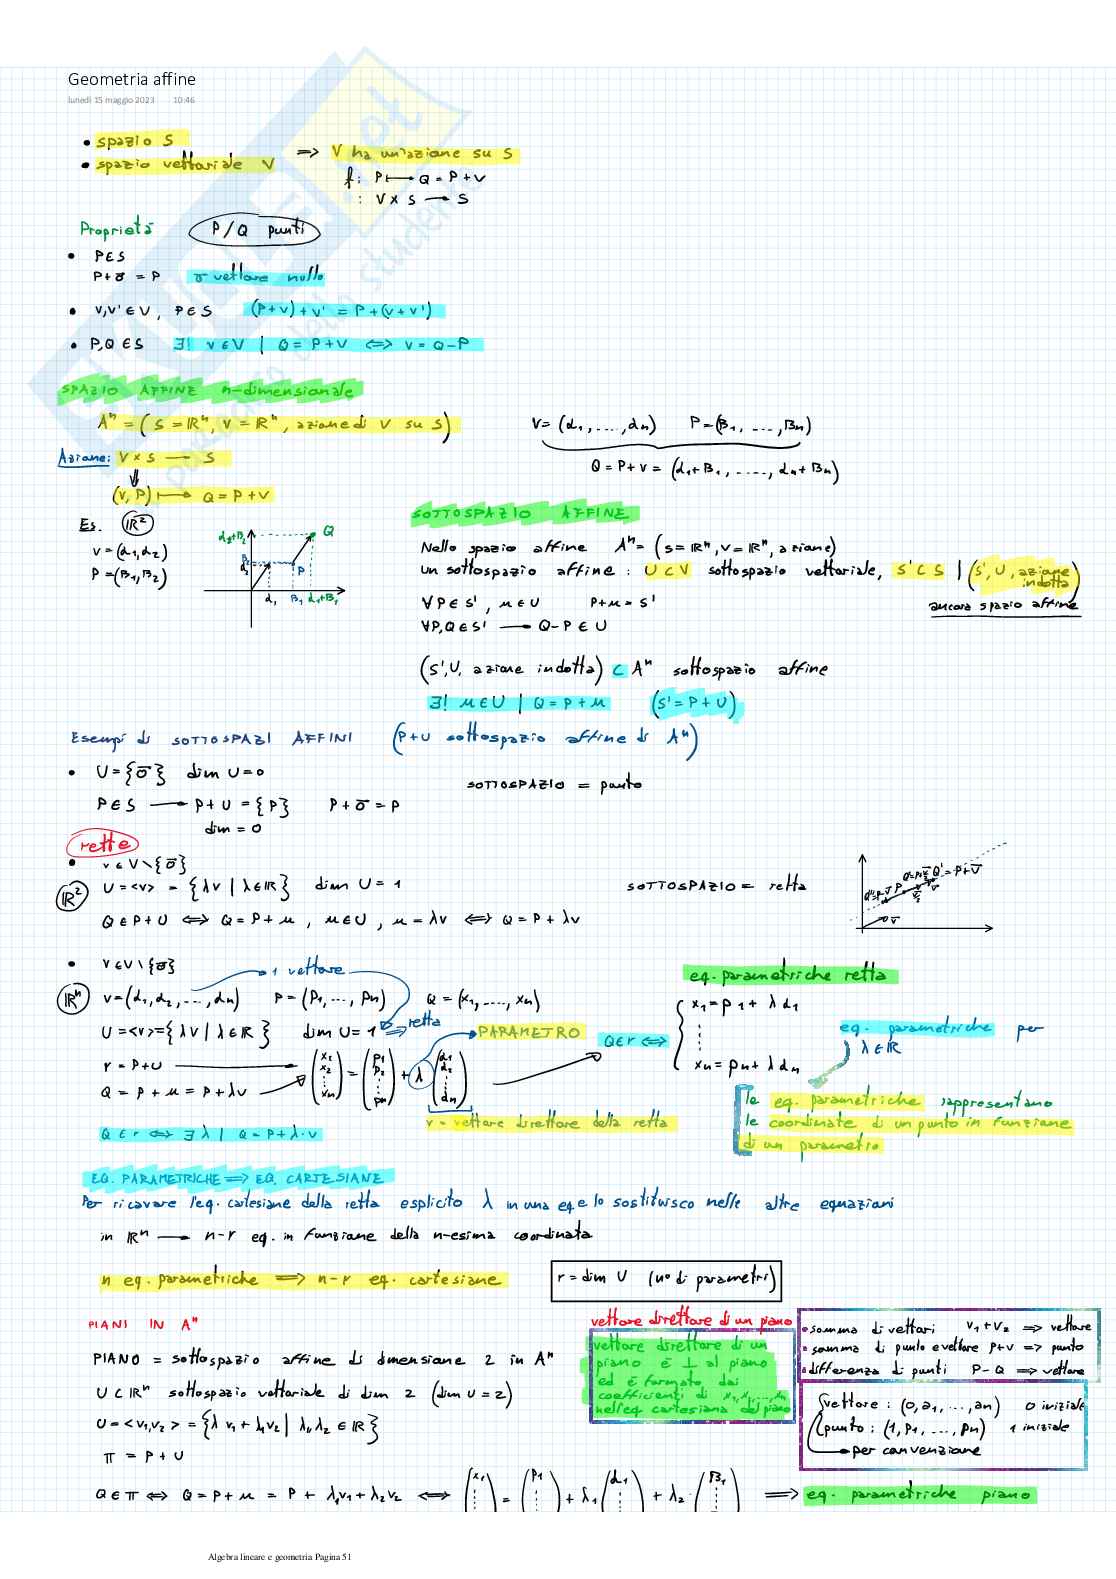 Geometria affine
lunedì 15 maggio 2023 10:46
• spazio S
• spazio vettoriale V => V ha un'azione su S
f: P ⟼ Q = P+V
: V × S ⟶ S
Proprietà P/Q punti
• P∈S
P+σ̄ = P σ̄ vettore nullo
• V,V'∈V, P∈S (P+V)+V' = P+(V+V')
• P,Q∈S ∃! V∈V | Q=P+V ⟺ V=Q-P
SPAZIO AFFINE n-dimensionale
Aⁿ=(S=ℝⁿ, V=ℝⁿ, azione di V su S)
V=(α₁,....,αn) P=(β₁,...,βn)
Q=P+V=(α₁+β₁,....,αn+βn)
Azione: V×S ⟶ S
⇓
(V,P) ⟼ Q=P+V
Es. ℝ²
V=(α₁,α₂)
P=(β₁,β₂)
α₂+β₂ Q
β₂ P
α₂
α₁ β₁ α₁+β₁
SOTTOSPAZIO AFFINE
Nello spazio affine Aⁿ=(S=ℝⁿ,V=ℝⁿ, azione)
un sottospazio affine: U⊂V sottospazio vettoriale, S'⊂S | (S',U, azione indotta)
ancora spazio affine
∀P∈S', u∈U P+u=S'
∀P,Q∈S' ⟶ Q-P∈U
(S',U, azione indotta) ⊂ Aⁿ sottospazio affine
∃! u∈U | Q=P+u (S'=P+U)
Esempi di SOTTOSPAZI AFFINI (P+U sottospazio affine di Aⁿ)
• U={σ̄} dim U=0
SOTTOSPAZIO = punto
P∈S ⟶ P+U={P} P+σ̄=P
dim=0
rette
• V∈V∖{σ̄}
ℝ² U=<v> = {λv | λ∈ℝ} dim U=1 SOTTOSPAZIO = retta
Q∈P+U ⟺ Q=P+u, u∈U, u=λv ⟺ Q=P+λv
Q'=P+V̄
• V∈V∖{σ̄} 1 vettore
ℝⁿ V=(α₁,α₂,...,αn) P=(P₁,...,Pn) Q=(x₁,....,xn)
U=<v>={λv | λ∈ℝ} dim U=1 => retta
r=P+U
Q=P+u=P+λv
(x₁ x₂ ⋮ xn) = (P₁ P₂ ⋮ Pn) + λ (α₁ α₂ ⋮ αn) PARAMETRO
v=vettore direttore della retta
Q∈r ⟺ ∃λ | Q=P+λ·v
eq. parametriche retta
Q∈r ⟺ { x₁=P₁+λα₁
⋮
xn=Pn+λαn
eq. parametriche per
λ∈ℝ
le eq. parametriche rappresentano
le coordinate di un punto in funzione
di un parametro
EQ. PARAMETRICHE => EQ. CARTESIANE
Per ricavare l'eq. cartesiana della retta esplicito λ in una eq e lo sostituisco nelle altre equazioni
in ℝⁿ ⟶ n-r eq. in funzione della n-esima coordinata
n eq. parametriche => n-r eq. cartesiane
r=dim U (n° di parametri)
PIANI IN Aⁿ
PIANO = sottospazio affine di dimensione 2 in Aⁿ
U⊂ℝⁿ sottospazio vettoriale di dim 2 (dim U=2)
U=<v₁,v₂> = {λ v₁+λ₂v₂ | λ₁,λ₂∈ℝ}
π = P+U
Q∈π ⟺ Q=P+u = P+λ₁v₁+λ₂v₂ ⟺ (x₁ ⋮ = (P₁ ⋮ + λ₁ (α₁ ⋮ + λ₂·(β₁ ⋮ => eq. parametriche piano
vettore direttore di un piano
vettore direttore di un
piano è ⊥ al piano
ed è formato dai
coefficienti di x₁,x₂,...,xn
nell'eq cartesiana del piano
• somma di vettori V₁+V₂ => vettore
• somma di punto e vettore P+V => punto
• differenza di punti P-Q => vettore
vettore: (0,a₁,...,an) 0 iniziale
punto: (1,P₁,...,Pn) 1 iniziale
per convenzione
Algebra lineare e geometria Pagina 51